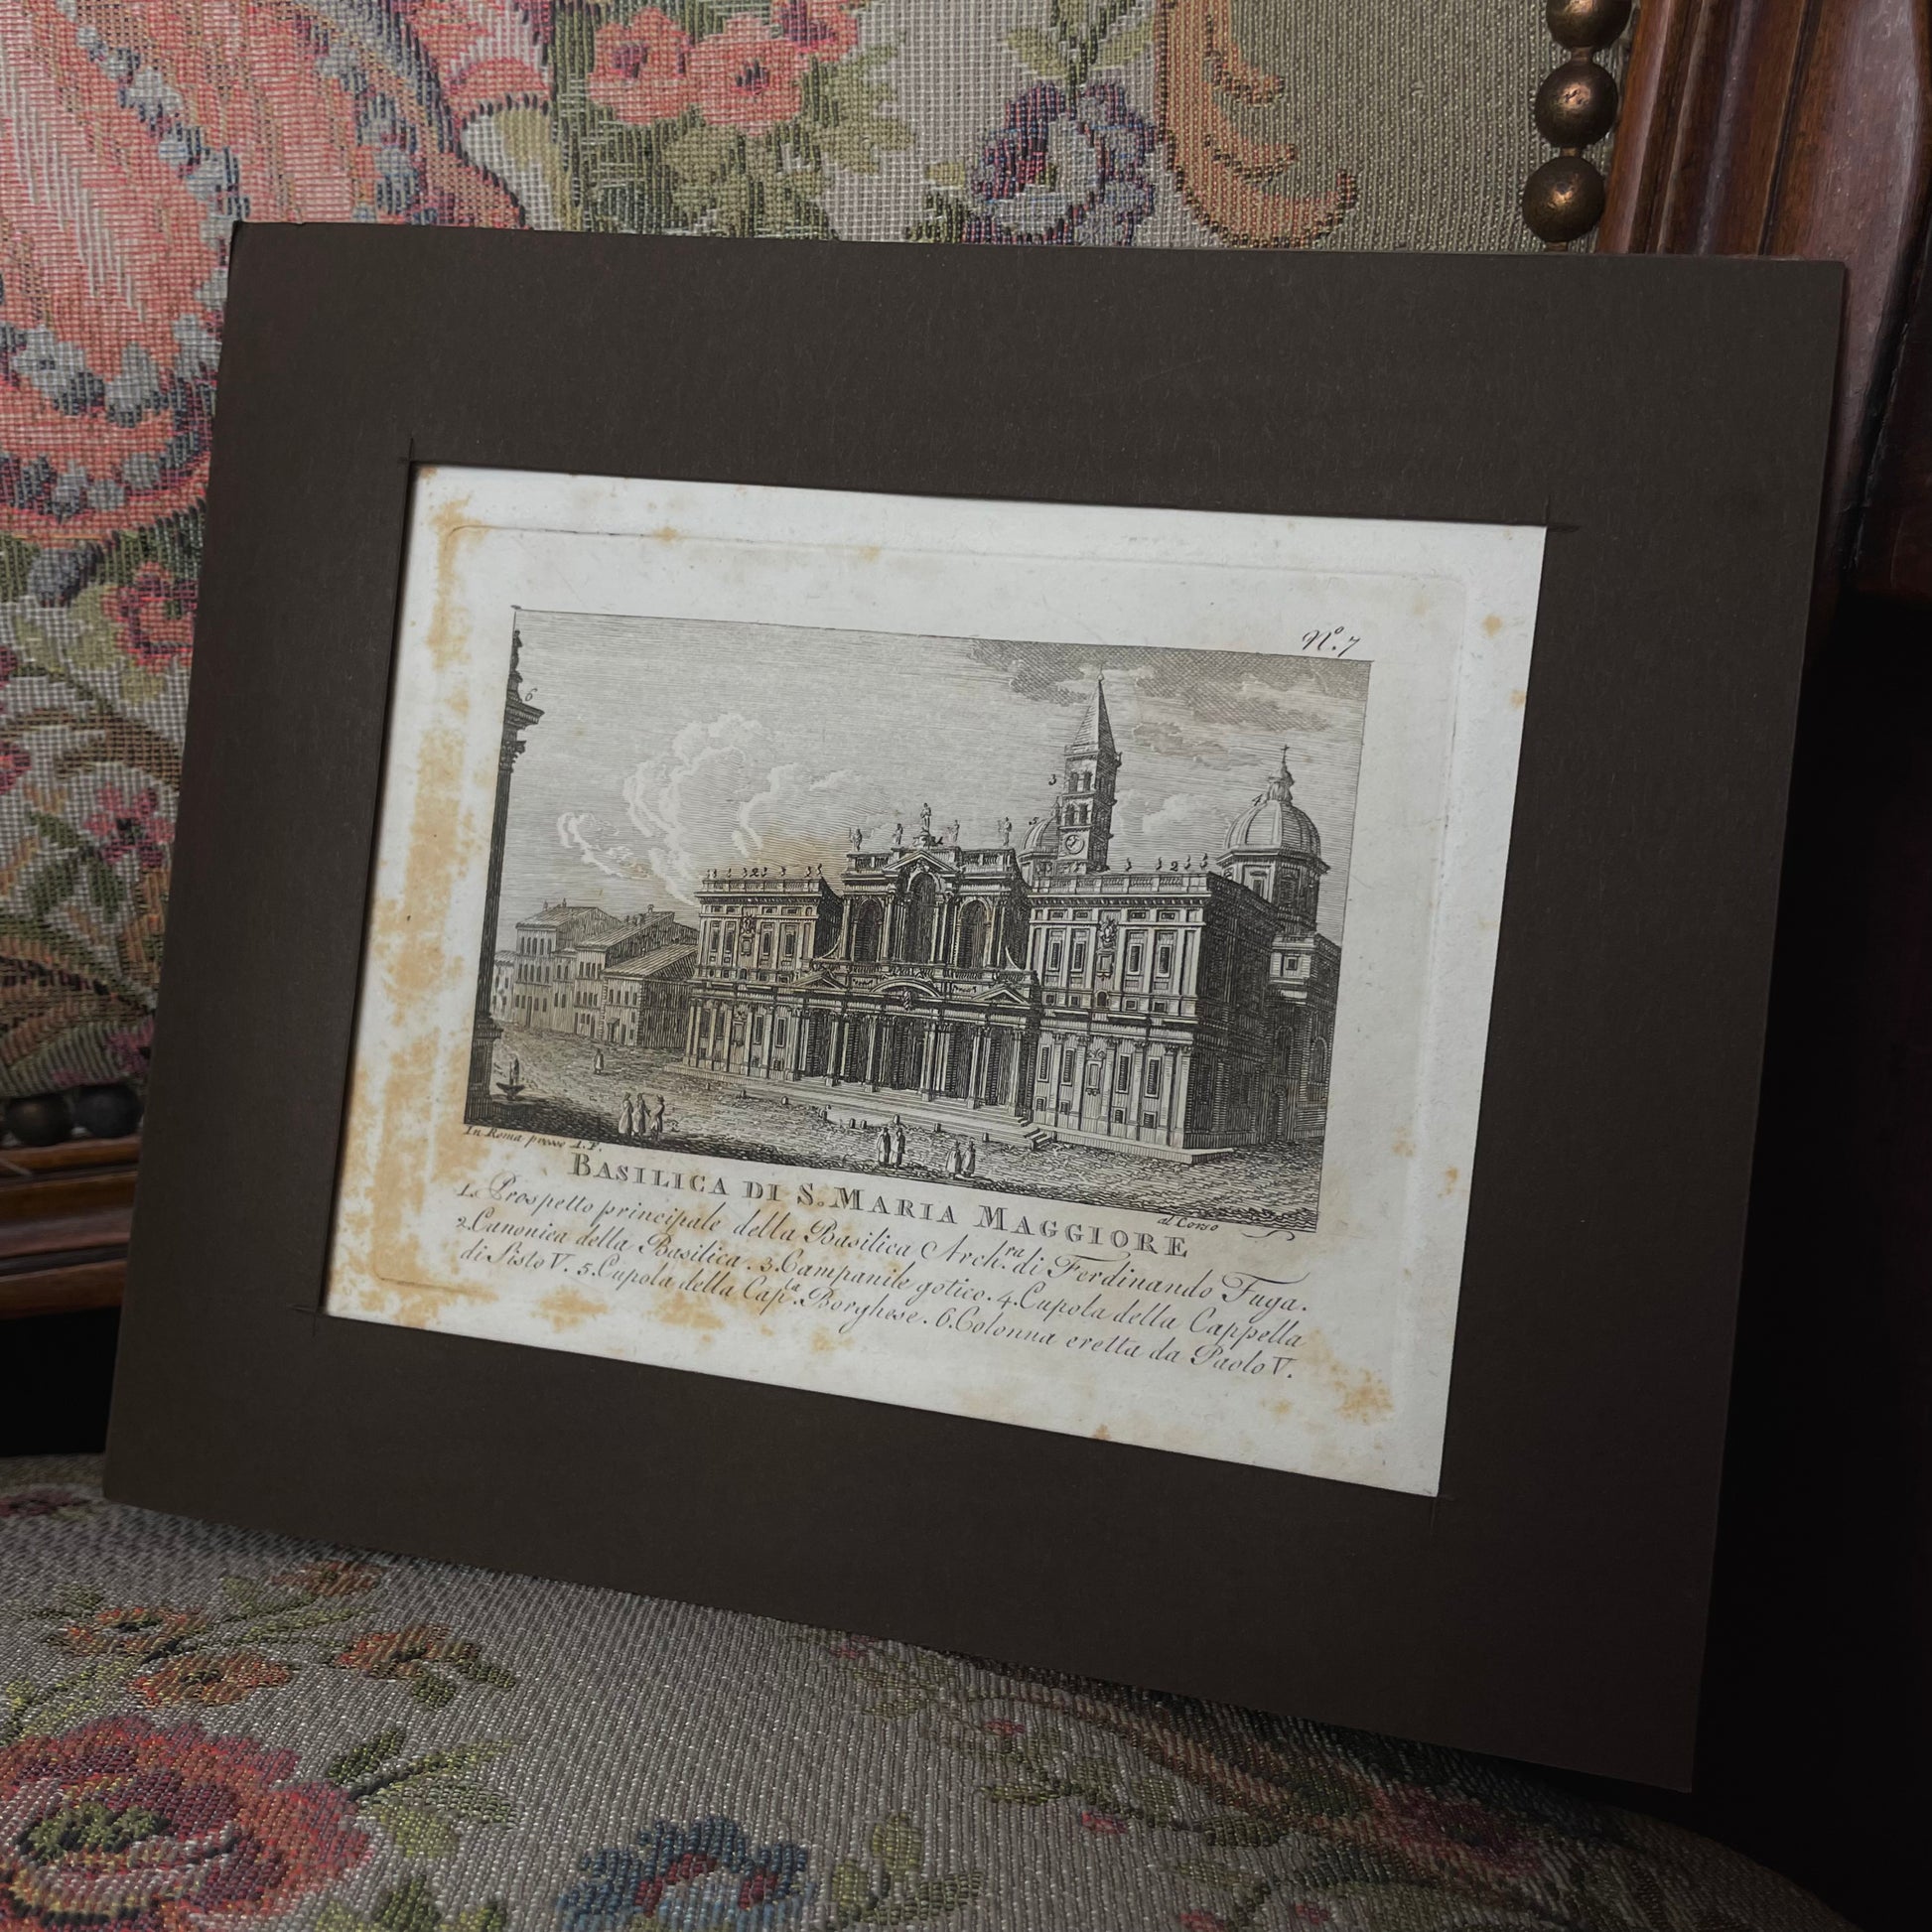 Nº. 7
6
3
4
5
2
2
In Roma presso A. F.
al Corso
BASILICA DI S. MARIA MAGGIORE
1. Prospetto principale della Basilica Arch.ra di Ferdinando Fuga.
2. Canonica della Basilica. 3. Campanile gotico. 4. Cupola della Cappella
di Sisto V. 5. Cupola della Cap.la Borghese. 6. Colonna eretta da Paolo V.